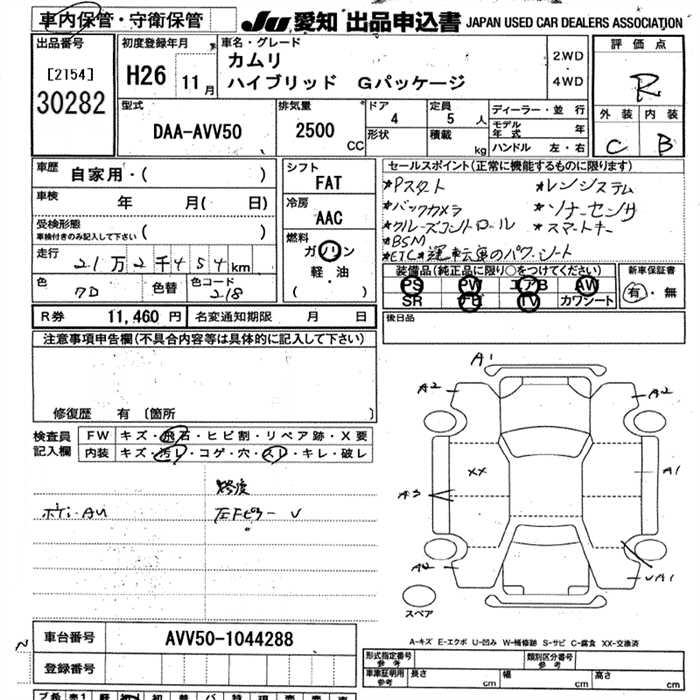 車内保管・守衛保管
JU 愛知 出品申込書 JAPAN USED CAR DEALERS ASSOCIATION
出品番号
[2154]
30282
初度登録年月
H26 11月
車名・グレード
カムリ
ハイブリッド Gパッケージ
2WD
・
4WD
評価点
R
外装 内装
C B
型式
DAA-AVV50
排気量
2500 CC
ドア
4
形状
定員
5 人
積載 kg
ディーラー・並行
モデル年式 年
ハンドル 左・右
車歴
自家用・( )
車検
年 月( 日)
受検形態
車検付きのみ記入して下さい ( )
走行
21万2千454km
色 色替 色コード
218
シフト
FAT
冷房
AAC
燃料
ガソリン
軽・油
( )
セールスポイント(正常に機能するものに限ります)
*Pスタート *レンシステム
*バックカメラ *ソナーセンサ
*クルーズコントロール *スマートキー
*BSM
*ETC *運転席のパワーシート
装備品(純正品に限り○をつけてください)
PS PW エアB AW
SR ナビ TV カワシート
新車保証書
有・無
R券 11,460円 名変通知期限 月 日
後日品
注意事項申告欄(不具合内容等は具体的に記入して下さい)
修復歴 有〔箇所 〕
検査員記入欄
FW キズ・飛石・ヒビ割・リペア跡・X要
内装 キズ・汚レ・コゲ・穴・スレ・キレ・破レ
左Fピラー V
A1
A2 A2
XX A1
A3
A2 A1
スペア
A-キズ E-エクボ U-凹み W-補修跡 S-サビ C-腐食 XX-交換済
車台番号 AVV50-1044288
登録番号
形式指定番号 参考
類別区分番号 参考
車庫証明用 参考 長さ cm 幅 cm 高さ cm